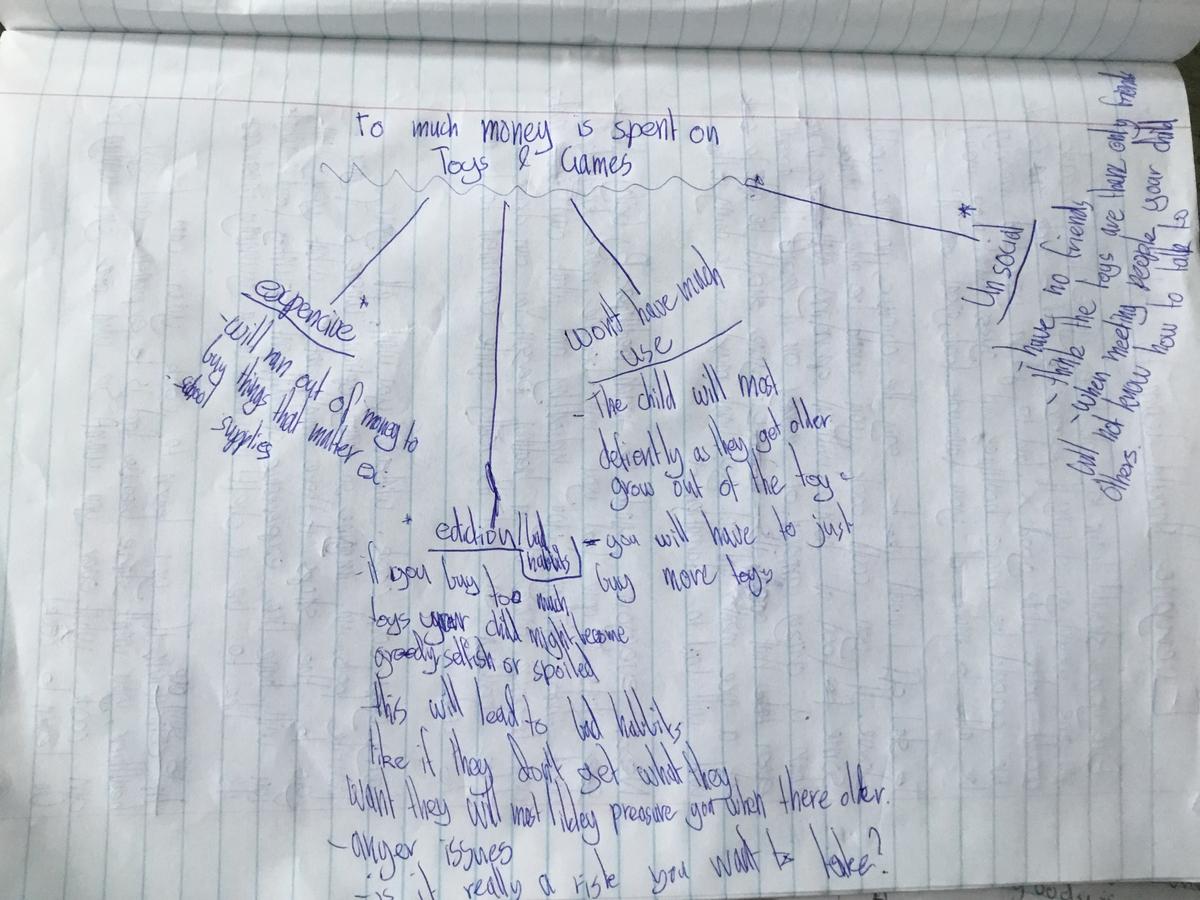 To much money is spent on
Toys & Games
expencive *
- will run out of money to
buy things that matter ex:
- school
supplies
* ediction/bad
habits
- if you buy too much
toys your child might become
greedy, selfish or spoiled
this will lead to bad habbits
like if they don't get what they
want they will most likley preasure you when there older.
- anger issues
- is it really a risk you want to take?
won't have much
use
- The child will most
defiently as they get older
grow out of the toy
- you will have to just
buy more toys
* Unsocial
- have no friends
- think the toys are their only friends
- when meeting people your child
will not know how to talk to
others.